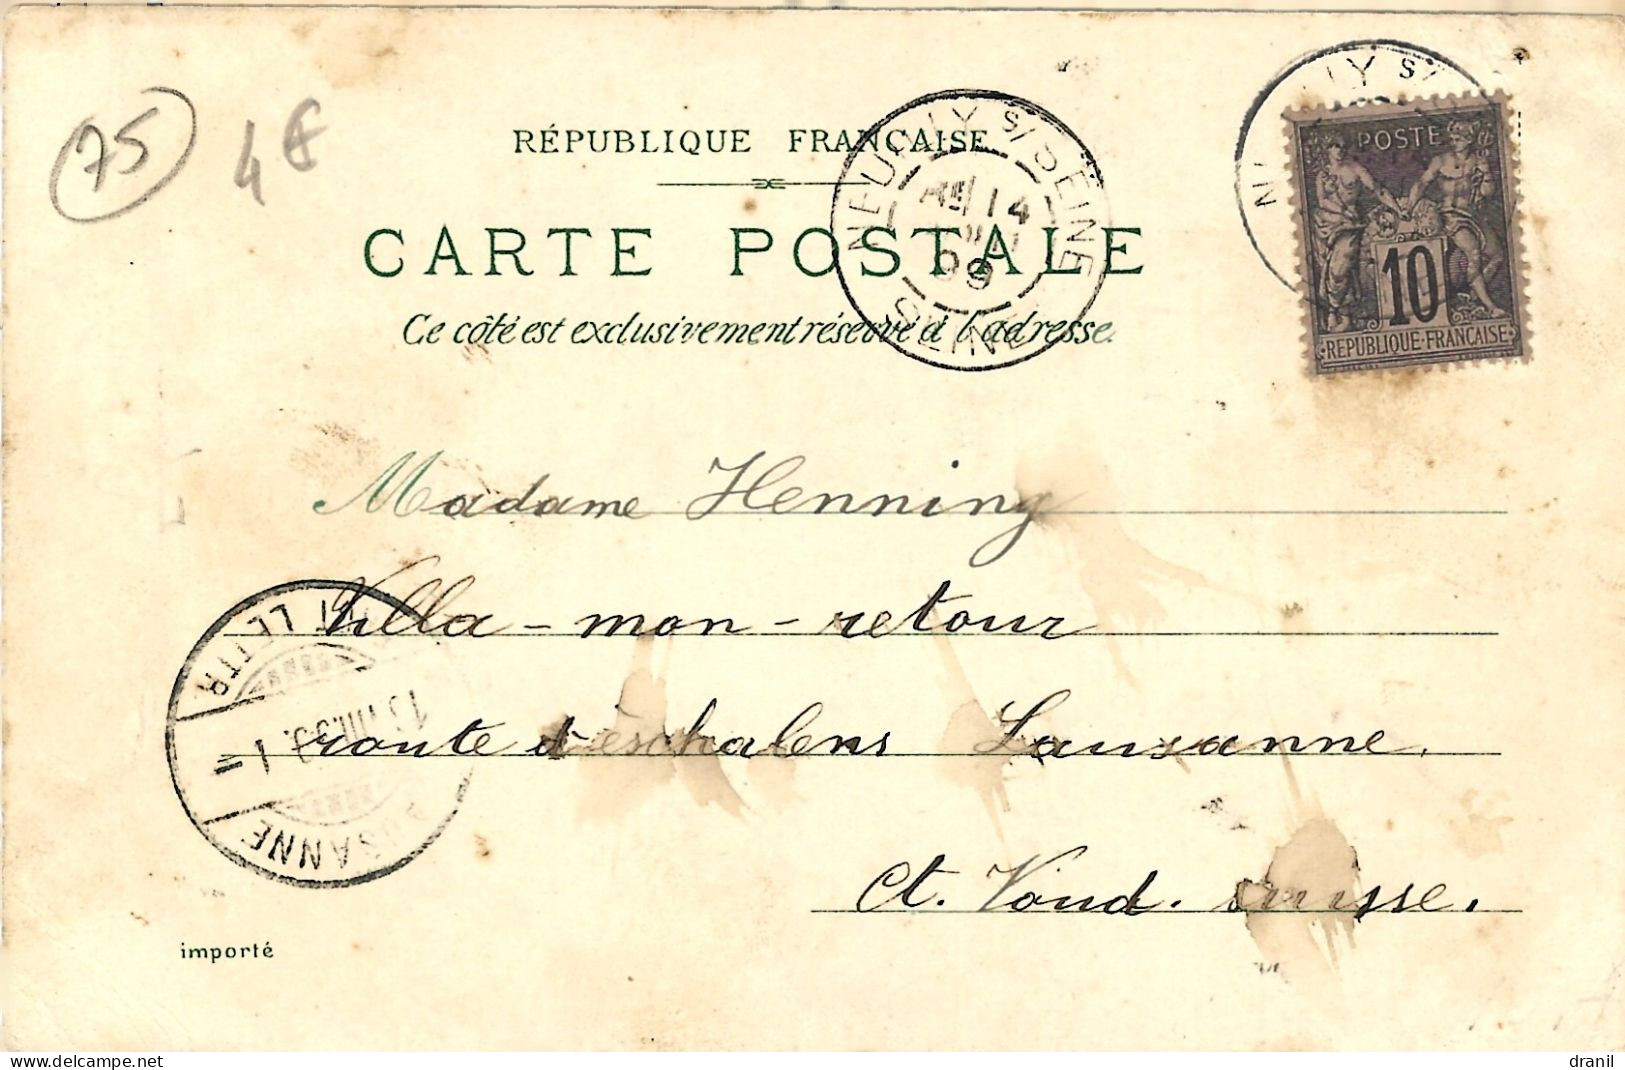 75
4€
RÉPUBLIQUE FRANÇAISE
CARTE POSTALE
Ce côté est exclusivement réservé à l'adresse.
NEUILLY S/ SEINE
14
99
SEINE
POSTE
10
REPUBLIQUE·FRANÇAISE
Madame Henning
Villa - mon - retour
route d'èschalens Lausanne.
Ct. Vaud. suisse.
LETTR
LAUSANNE
importé
dranil